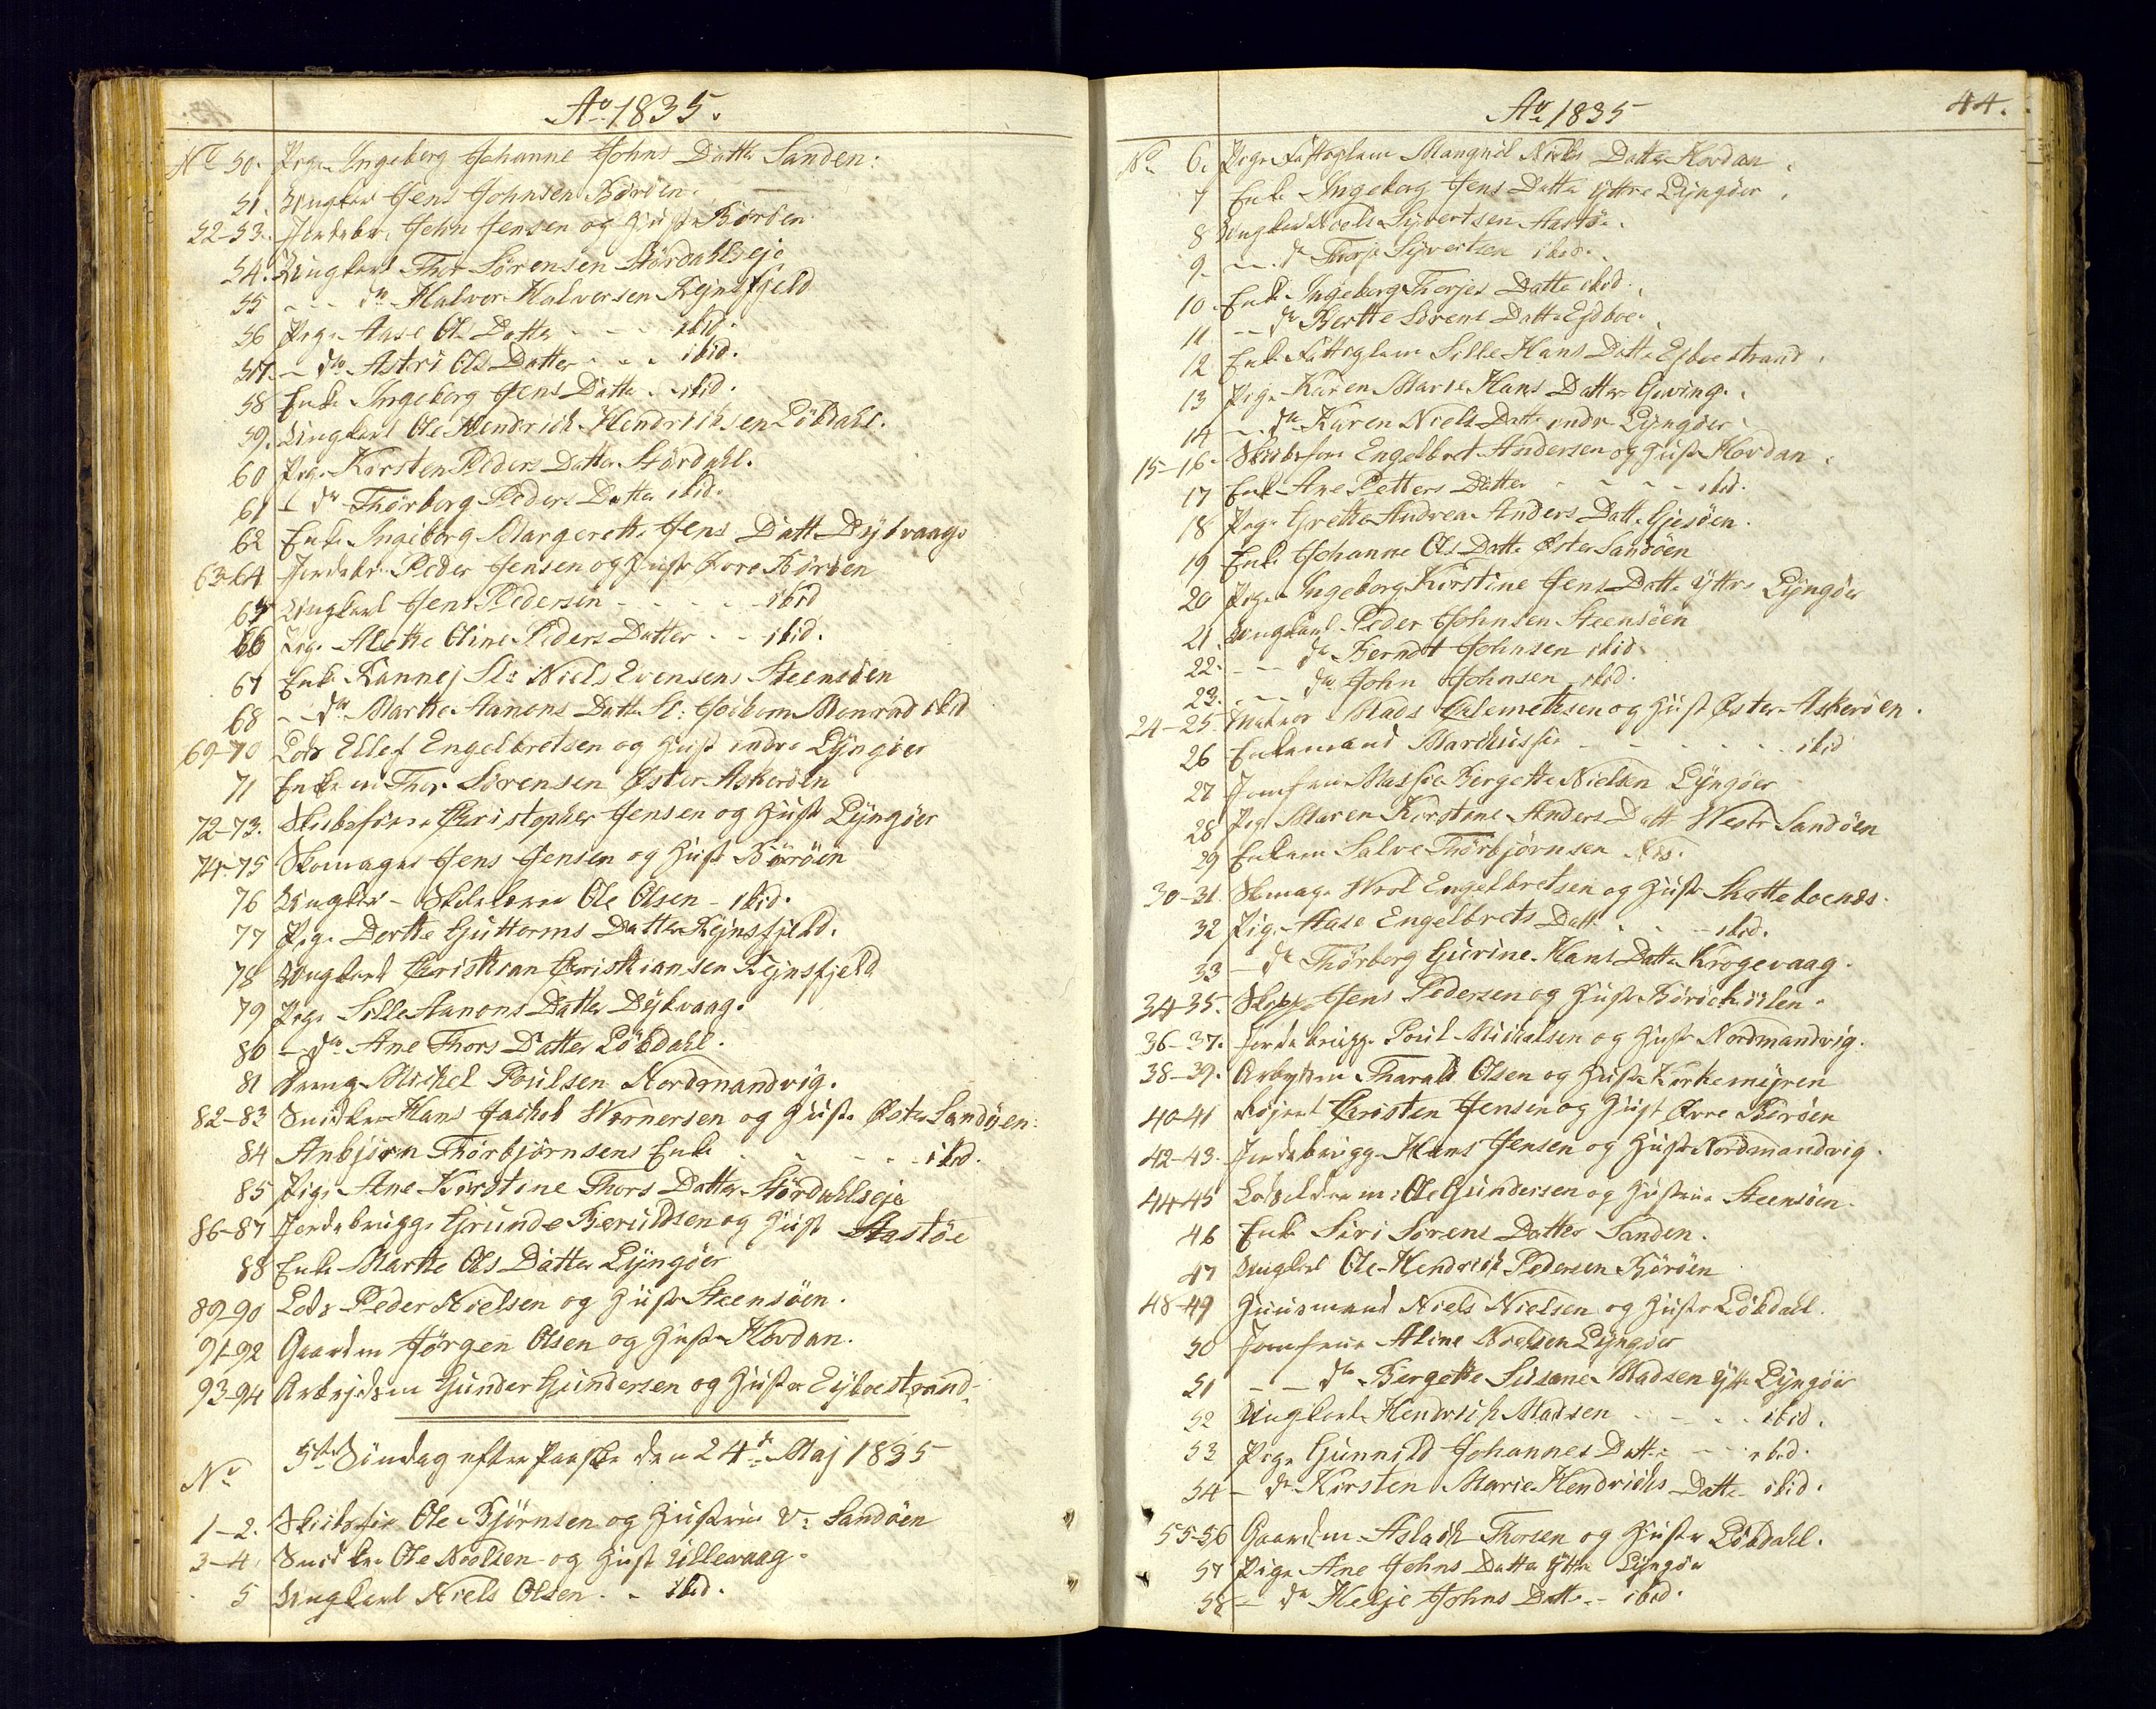 Ao 1835.
No 50. Pige Ingeborg Johanne Johns Datter Sanden.
51. Ungkarl Jens Johnsen Børøen.
52-53. Jordbr. John Jensen og Hustr Børøen
54. Ungkarl Thor Sørensen Størdahlseje
55 - - do Halvor Halvorsen Rejnsfjeld
56 Pige Aase Ols Datter - - - ibid.
57. - do Astri Ols Datter - - - ibid.
58 Enke Ingeborg Jens Datter - ibid.
59. Ungkarl Ole Hendrich Hendrichsen Løbdahl.
60 Pige Kirsten Peders Datter Størdahl.
61 - do Thorborg Peders Datter ibid.
62 Enke Ingeborg Margrethe Jens Datt Dybvaag.
63-64 Jordbr. Peder Jensen og Hustr Øvre Børøen
65 Ungkarl Jens Pedersen - - - - ibid
66 Pige Alette Oline Peders Datter - - ibid.
67 Enke Rannej Sl: Niels Evensens Steensøen
68 - do Marthe Aanons Datter Sl: Menrad ibid
69-70 Lods Ellef Engelbretsen og Hust indre Lyngøer
71 Enkem Thor Sørensen Øster Askerøen
72-73. Skibsfører Christopher Jensen og Hust Lyngøer
74-75 Skomager Jens Jensen og Hust Børøen
76 Ungkarl - Ole Olsen - ibid.
77 Pige Dorthe Guttorms Datter Rejnsfjeld.
78 Ungkarl Christian Christiansen Rejnsfjeld
79 Pige Sille Aanons Datter Dybvaag.
80 - do Ane Thors Datter Løbdahl.
81 Dreng Michel Poulsen Nordmandvig.
82-83 Snidker Hans Jachob Wernersen og Hustr Øster Sandøen.
84 Anbjørn Thorbjørnsens Enke - - - - ibid.
85 Pige Ane Kirstine Thors Datter Størdahlseje
86-87 Jordebrugge Grunde Beruldsen og Hust Aastøe
88 Enke Marthe Ols Datter Lyngøer
89-90 Lods Peder Nielsen og Hustr Steensøen.
91-92 Gaardm Jørgen Olsen og Hustr Hovdan.
93-94 Arbejdsm Gunder Gundersen og Hustr Eijboestrand.
5te Søndag efter Paaske den 24de Maj 1835
No
1-2. Skibsfør Ole Bjørnsen og Hustrue V: Sandøen
3-4. Snidker Ole Noelsen og Hust Lillevaag.
5 Ungkarl Niels Olsen - - ibid.
Ao 1835
44.
No 6. Pige Fattiglem Magnil Niels Datter Hovdan
7 Enke Ingeborg Jens Datter Yttre Lyngøer
8 Ungkarl Niels Syvertsen Aastøe.
9 - - do Thorje Syvertsen ibid.
10 Enke Ingeborg Thorjes Datter ibid.
11 - - do Berthe Sørens Datter Ejdboe.
12 Enke Fattiglem Sille Hans Datter Ejboestrand
13 Pige Karen Marie Hans Datter Gjeving.
14 - do Karen Niels Datter indre Lyngøer
15-16. Skibsfører Engelbret Andersen og Hustr Hovdan
17 Enke Ane Petters Datter - - - - ibid.
18 Pige Grethe Andrea Anders Datt Gjesøen.
19 Enke Johanne Ols Datter Øster Sandøen
20 Pige Ingeborg Kirstine Jens Datter Yttre Lyngøer
21. Ungkarl Peder Johnsen Steensøen
22. - - do Berndt Johnsen ibid.
23. - - do John Johnsen ibid.
24-25. Mads Clemethsen og Hust Øster Askerøen.
26 Enkemand - - - - - ibid
27 Jomfrue Bergette Nielsen Lyngøer
28 Pige Maren Kirstine Anders Datt Westr Sandøen
29 Enkem Salve Thorbjørnsen
30-31. Skomag. Wrol Engelbretsen og Hustr Skatteboenes.
32 Pige Aase Engelbrets Datt - - - ibid.
33 - do Thorborg Gurine Hans Datter Krogevaag.
34-35. Skipp. Jens Pedersen og Hustr Børøekielen.
36-37. Jordebrugg. Poul Michalsen og Hustr Nordmandvig.
38-39. Arbejdsm Tharald Olsen og Hustr Kirkemyren
40-41 Christen Jensen og Hust Øvre Børøen
42-43. Jordebrugg Hans Jensen og Hustr Nordmandvig.
44-45 Ole Gundersen og Hustrue Steensøen.
46 Enke Siri Sørens Datter Sanden.
47 Ungkarl Ole Hendrich Pedersen Børøen
48-49 Huusmand Niels Nielsen og Hustr Løbdahl.
50 Jomfrue Aline Nielsen Lyngøer
51 - - do Bergette Susane Madsen Ytt Lyngøer
52 Ungkarl Hendrich Madsen - - - - ibid.
53 Pige Gunnild Johannes Datter - - ibid.
54 - do Kirsten Marie Hendrichs Datter ibid.
55-56 Gaardm Aslach Thorsen og Hustr Løbdahl.
57 Pige Ane Johns Datter Yttre Lyngøer
58 - do Helje Johns Datt - - ibid.